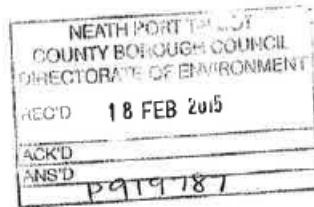 NEATH PORT TALBOT
COUNTY BOROUGH COUNCIL
DIRECTORATE OF ENVIRONMENT
REC'D 18 FEB 2015
ACK'D
ANS'D
P919787